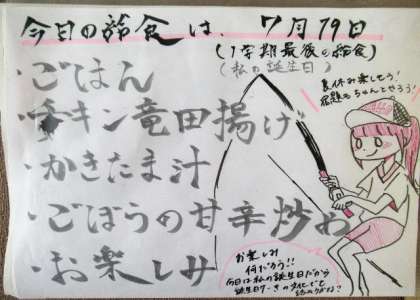 今日の給食は、7月19日
(1学期最後の給食)
(私の誕生日)
・ごはん
・チキン竜田揚げ
・かきたま汁
・ごぼうの甘辛炒め
・お楽しみ
夏休み楽しもう!
宿題もちゃんとやろう!
お楽しみ
何だろう!!
今日は私の誕生日だから
誕生日ケーキの文化でも